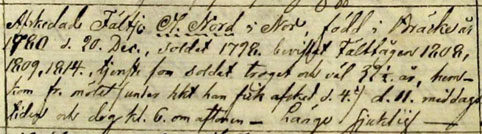 Afskedad Fältjä. N. Nord i Nor, född i Bräcke år
1780 d. 20. Dec., soldat 1798. bevistat Fälttågen 1808,
1809, 1814., tjente som soldat troget och väl 32½ år, hem-
kom fr. mötet (under hket han fick afsked d. 4.) d. 11. middags
tiden och dog kl. 6. om aftonen — länge sjuklig —